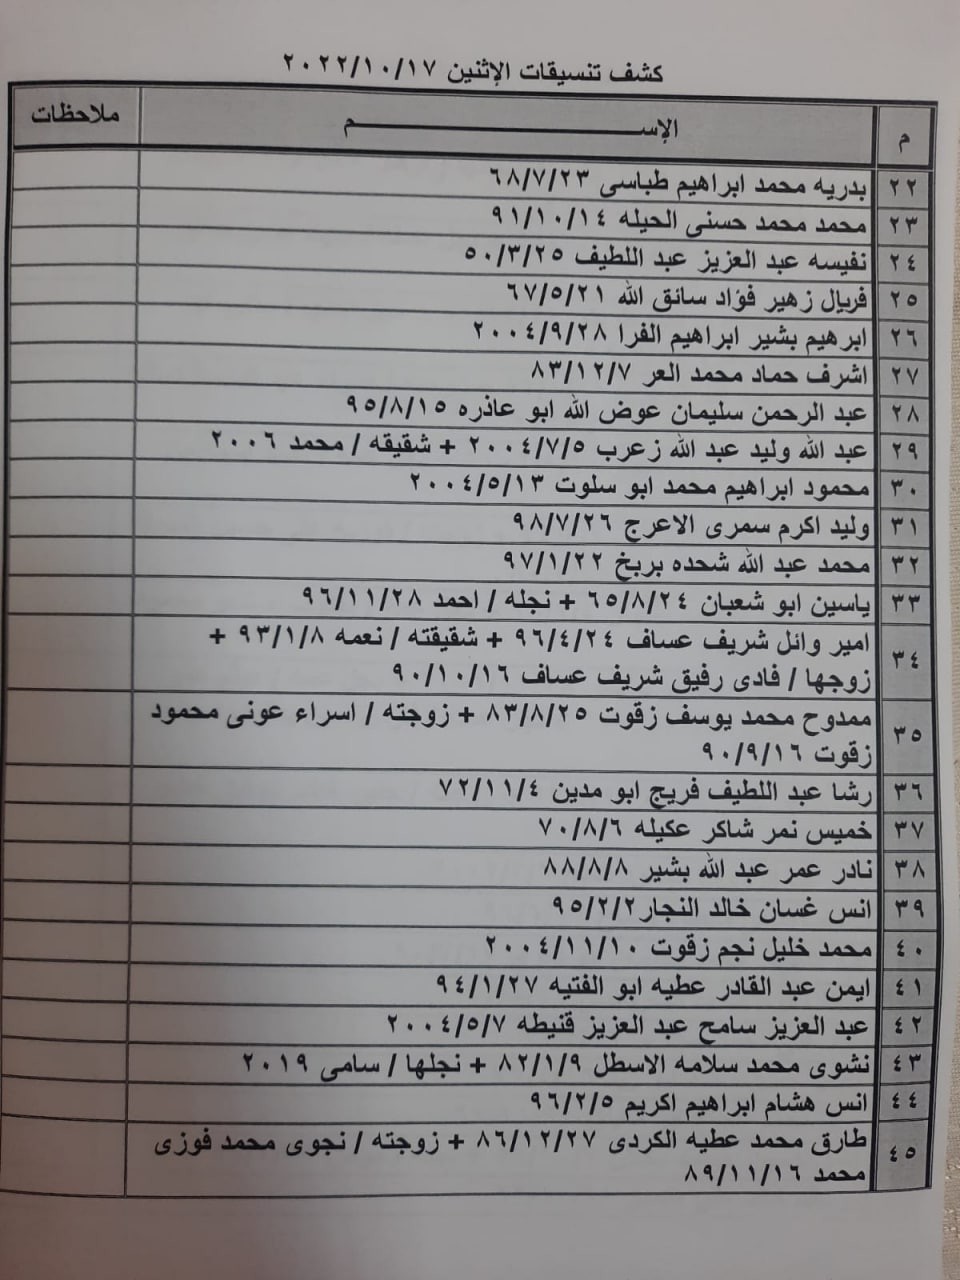 كشف تنسيقات الإثنين ٢٠٢٢/١٠/١٧
م الإســـــــــــــم ملاحظات
٢٢ بدريه محمد ابراهيم طباسى ٦٨/٧/٢٣
٢٣ محمد محمد حسنى الحيله ٩١/١٠/١٤
٢٤ نفيسه عبد العزيز عبد اللطيف ٥٠/٣/٢٥
٢٥ فريال زهير فؤاد سائق الله ٦٧/٥/٢١
٢٦ ابرهيم بشير ابراهيم الفرا ٢٠٠٤/٩/٢٨
٢٧ اشرف حماد محمد العر ٨٣/١٢/٧
٢٨ عبد الرحمن سليمان عوض الله ابو عاذره ٩٥/٨/١٥
٢٩ عبد الله وليد عبد الله زعرب ٢٠٠٤/٧/٥ + شقيقه / محمد ٢٠٠٦
٣٠ محمود ابراهيم محمد ابو سلوت ٢٠٠٤/٥/١٣
٣١ وليد اكرم سمرى الاعرج ٩٨/٧/٢٦
٣٢ محمد عبد الله شحده بربخ ٩٧/١/٢٢
٣٣ ياسين ابو شعبان ٦٥/٨/٢٤ + نجله / احمد ٩٦/١١/٢٨
٣٤ امير وائل شريف عساف ٩٦/٤/٢٤ + شقيقته / نعمه ٩٣/١/٨ +
زوجها / فادى رفيق شريف عساف ٩٠/١٠/١٦
٣٥ ممدوح محمد يوسف زقوت ٨٣/٨/٢٥ + زوجته / اسراء عونى محمود
زقوت ٩٠/٩/١٦
٣٦ رشا عبد اللطيف فريج ابو مدين ٧٢/١١/٤
٣٧ خميس نمر شاكر عكيله ٧٠/٨/٦
٣٨ نادر عمر عبد الله بشير ٨٨/٨/٨
٣٩ انس غسان خالد النجار ٩٥/٢/٢
٤٠ محمد خليل نجم زقوت ٢٠٠٤/١١/١٠
٤١ ايمن عبد القادر عطيه ابو الفتيه ٩٤/١/٢٧
٤٢ عبد العزيز سامح عبد العزيز قنيطه ٢٠٠٤/٥/٧
٤٣ نشوى محمد سلامه الاسطل ٨٢/١/٩ + نجلها / سامى ٢٠١٩
٤٤ انس هشام ابراهيم اكريم ٩٦/٢/٥
٤٥ طارق محمد عطيه الكردى ٨٦/١٢/٢٧ + زوجته / نجوى محمد فوزى
محمد ٨٩/١١/١٦